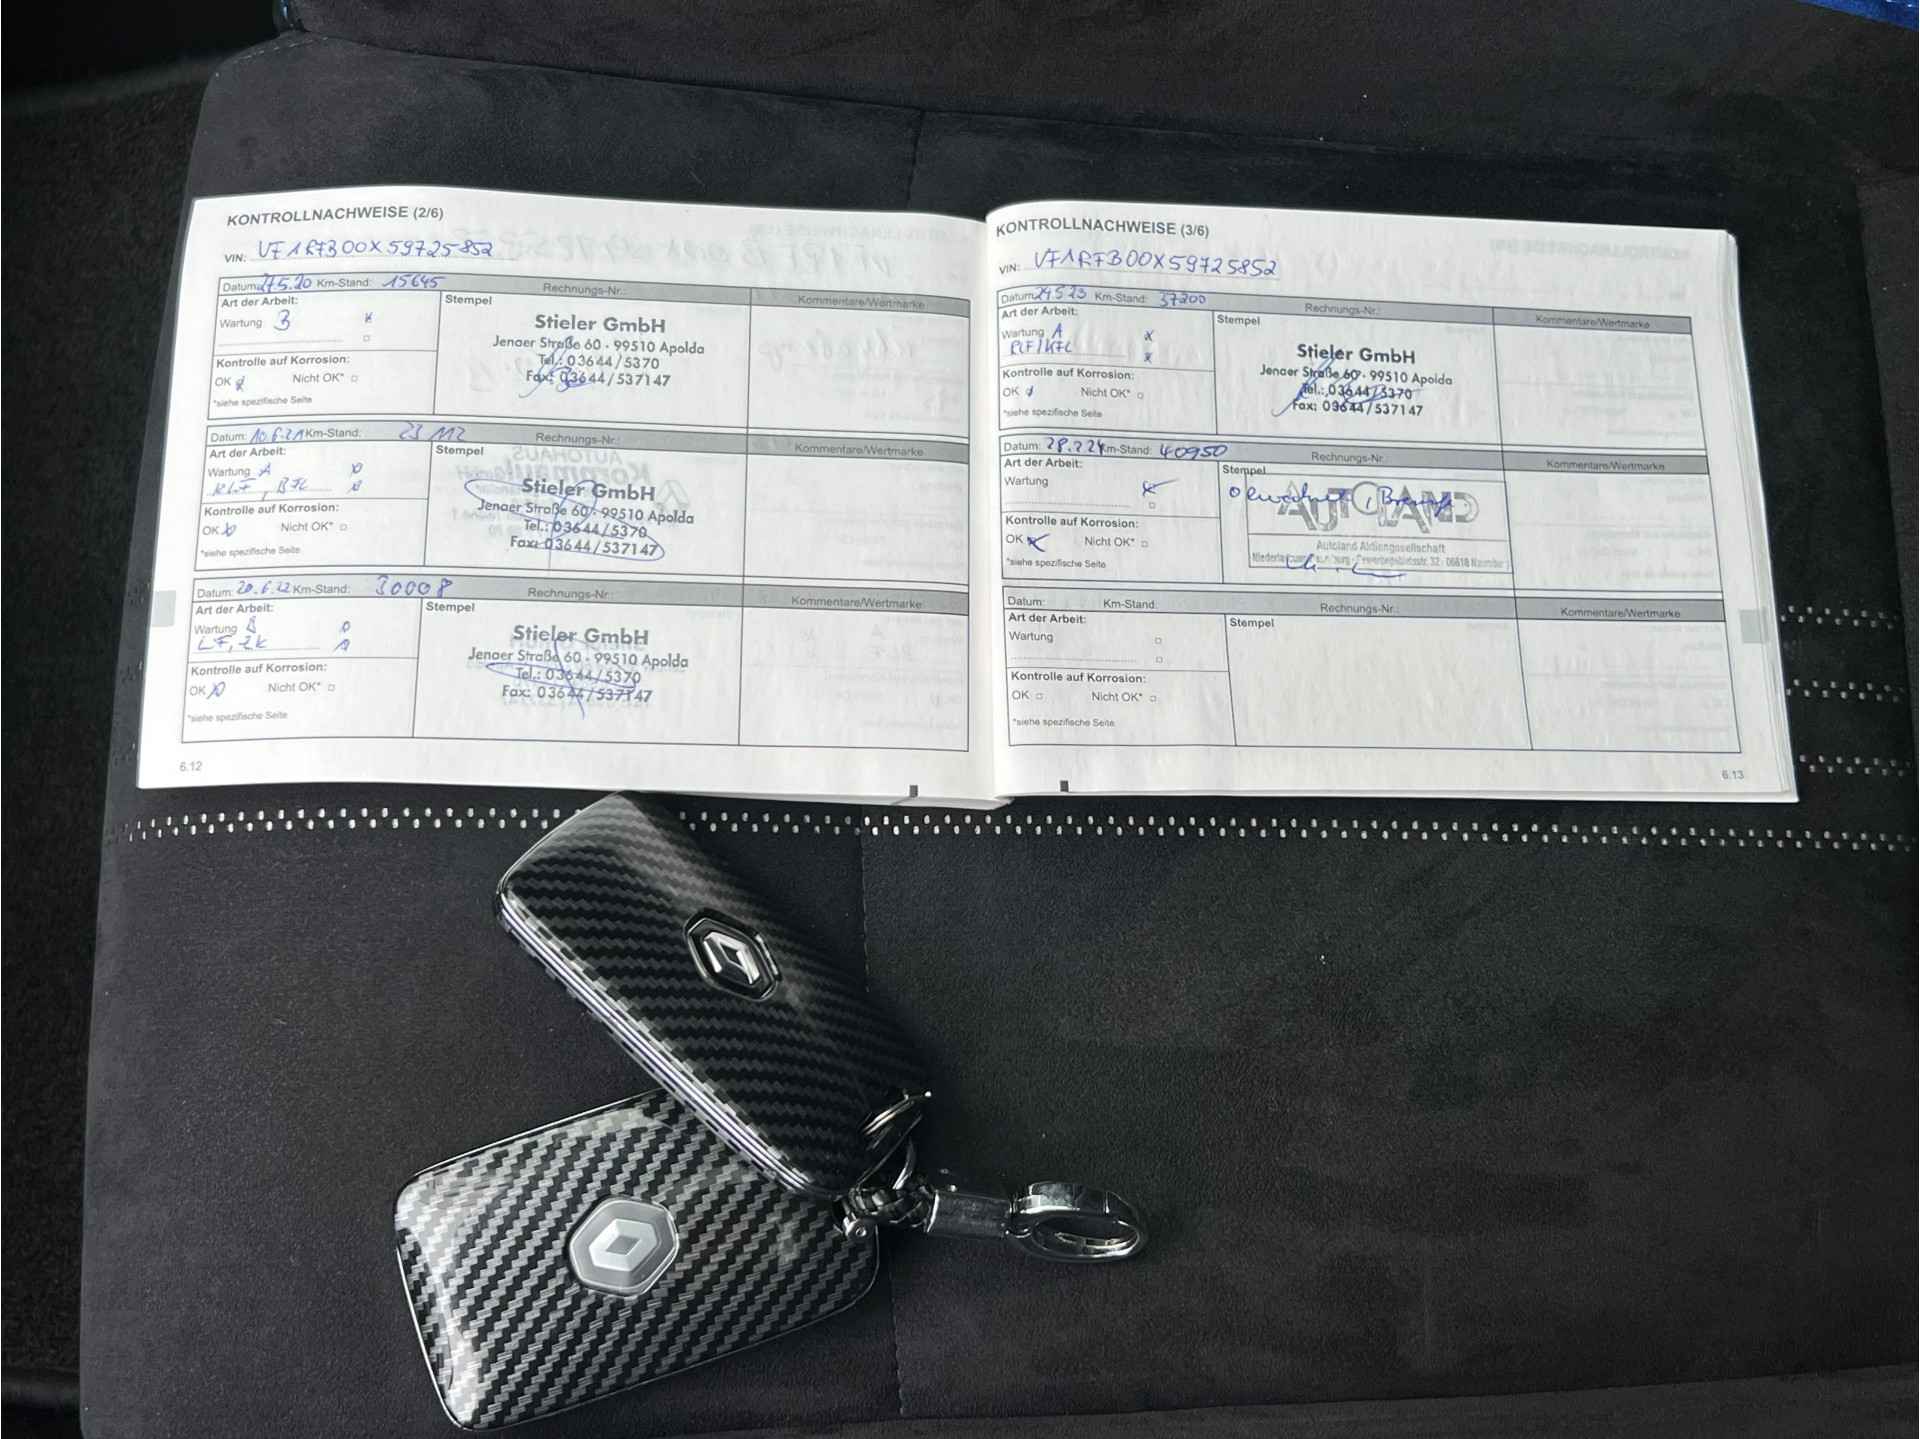 KONTROLLNACHWEISE (2/6)
VIN: VF1RFB00X59725852
Datum: 27.5.20 Km-Stand: 15645 Rechnungs-Nr.:
Art der Arbeit: Stempel Kommentare/Wertmarke
Wartung B x
Stieler GmbH
Jenaer Straße 60 · 99510 Apolda
Tel.: 03644/5370
Fax: 03644/537147
Kontrolle auf Korrosion:
OK x Nicht OK*
*siehe spezifische Seite
Datum: 10.6.21 Km-Stand: 23112 Rechnungs-Nr.:
Art der Arbeit: Stempel Kommentare/Wertmarke
Wartung A
Stieler GmbH
Jenaer Straße 60 · 99510 Apolda
Tel.: 03644/5370
Fax: 03644/537147
Kontrolle auf Korrosion:
OK Nicht OK*
*siehe spezifische Seite
Datum: 20.6.22 Km-Stand: 30008 Rechnungs-Nr.:
Art der Arbeit: Stempel Kommentare/Wertmarke
Wartung B
LF, ZK
Stieler GmbH
Jenaer Straße 60 · 99510 Apolda
Tel.: 03644/5370
Fax: 03644/537147
Kontrolle auf Korrosion:
OK Nicht OK*
*siehe spezifische Seite
6.12
KONTROLLNACHWEISE (3/6)
VIN: VF1RFB00X59725852
Datum: 24.5.23 Km-Stand: 37200 Rechnungs-Nr.:
Art der Arbeit: Stempel Kommentare/Wertmarke
Wartung A x
x
Stieler GmbH
Jenaer Straße 60 · 99510 Apolda
Tel.: 03644/5370
Fax: 03644/537147
Kontrolle auf Korrosion:
OK Nicht OK*
*siehe spezifische Seite
Datum: Km-Stand: 40950 Rechnungs-Nr.:
Art der Arbeit: Stempel Kommentare/Wertmarke
Wartung x
AUTOLAND
Autoland Aktiengesellschaft
Kontrolle auf Korrosion:
OK x Nicht OK*
*siehe spezifische Seite
Datum: Km-Stand: Rechnungs-Nr.:
Art der Arbeit: Stempel Kommentare/Wertmarke
Wartung
Kontrolle auf Korrosion:
OK Nicht OK*
*siehe spezifische Seite
6.13